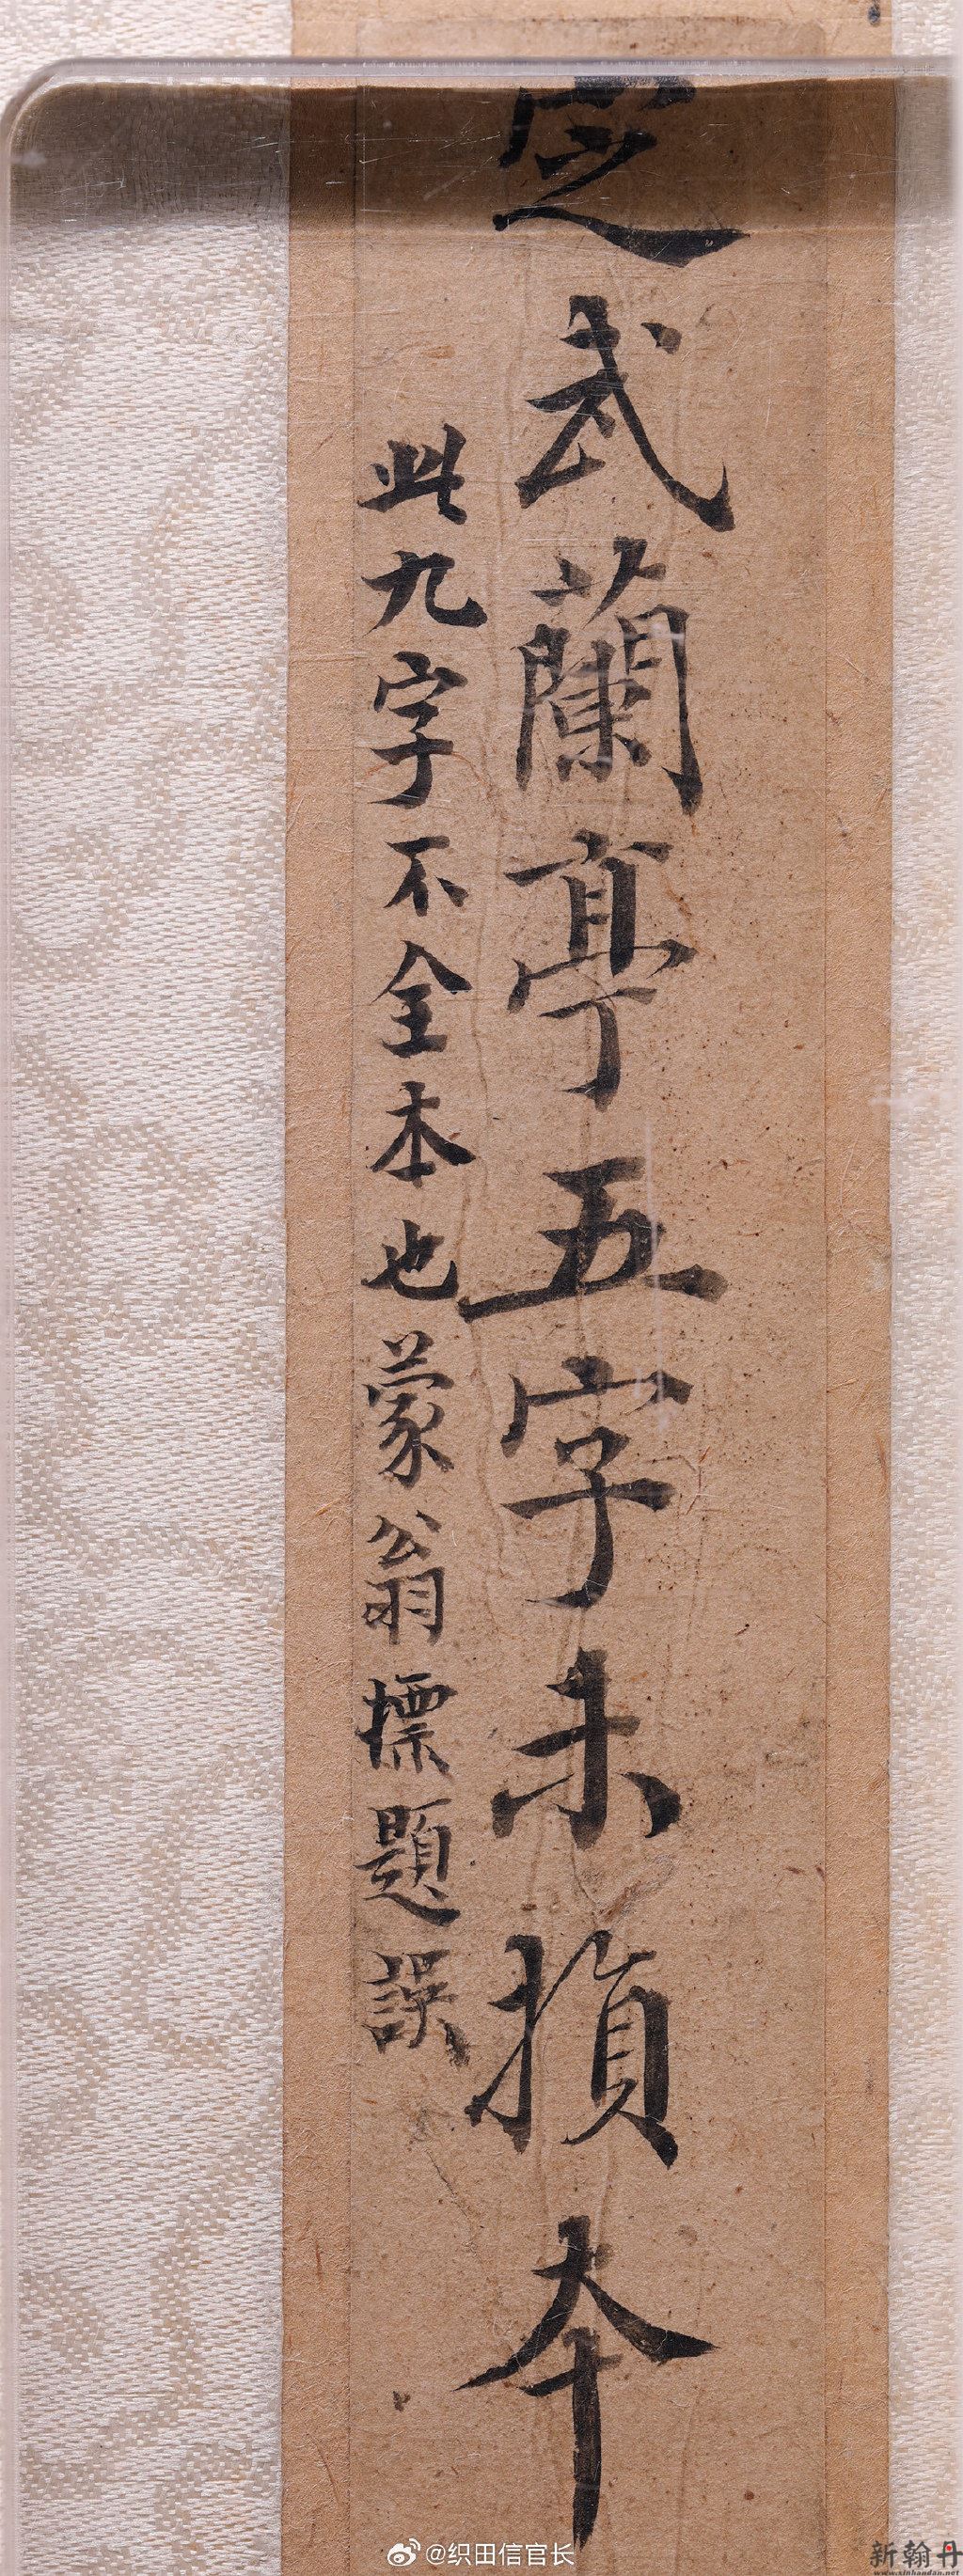 定武蘭亭五字未損本
此九字不全本也蒙翁標題誤
@织田信官长
新翰丹
www.xinhandan.net